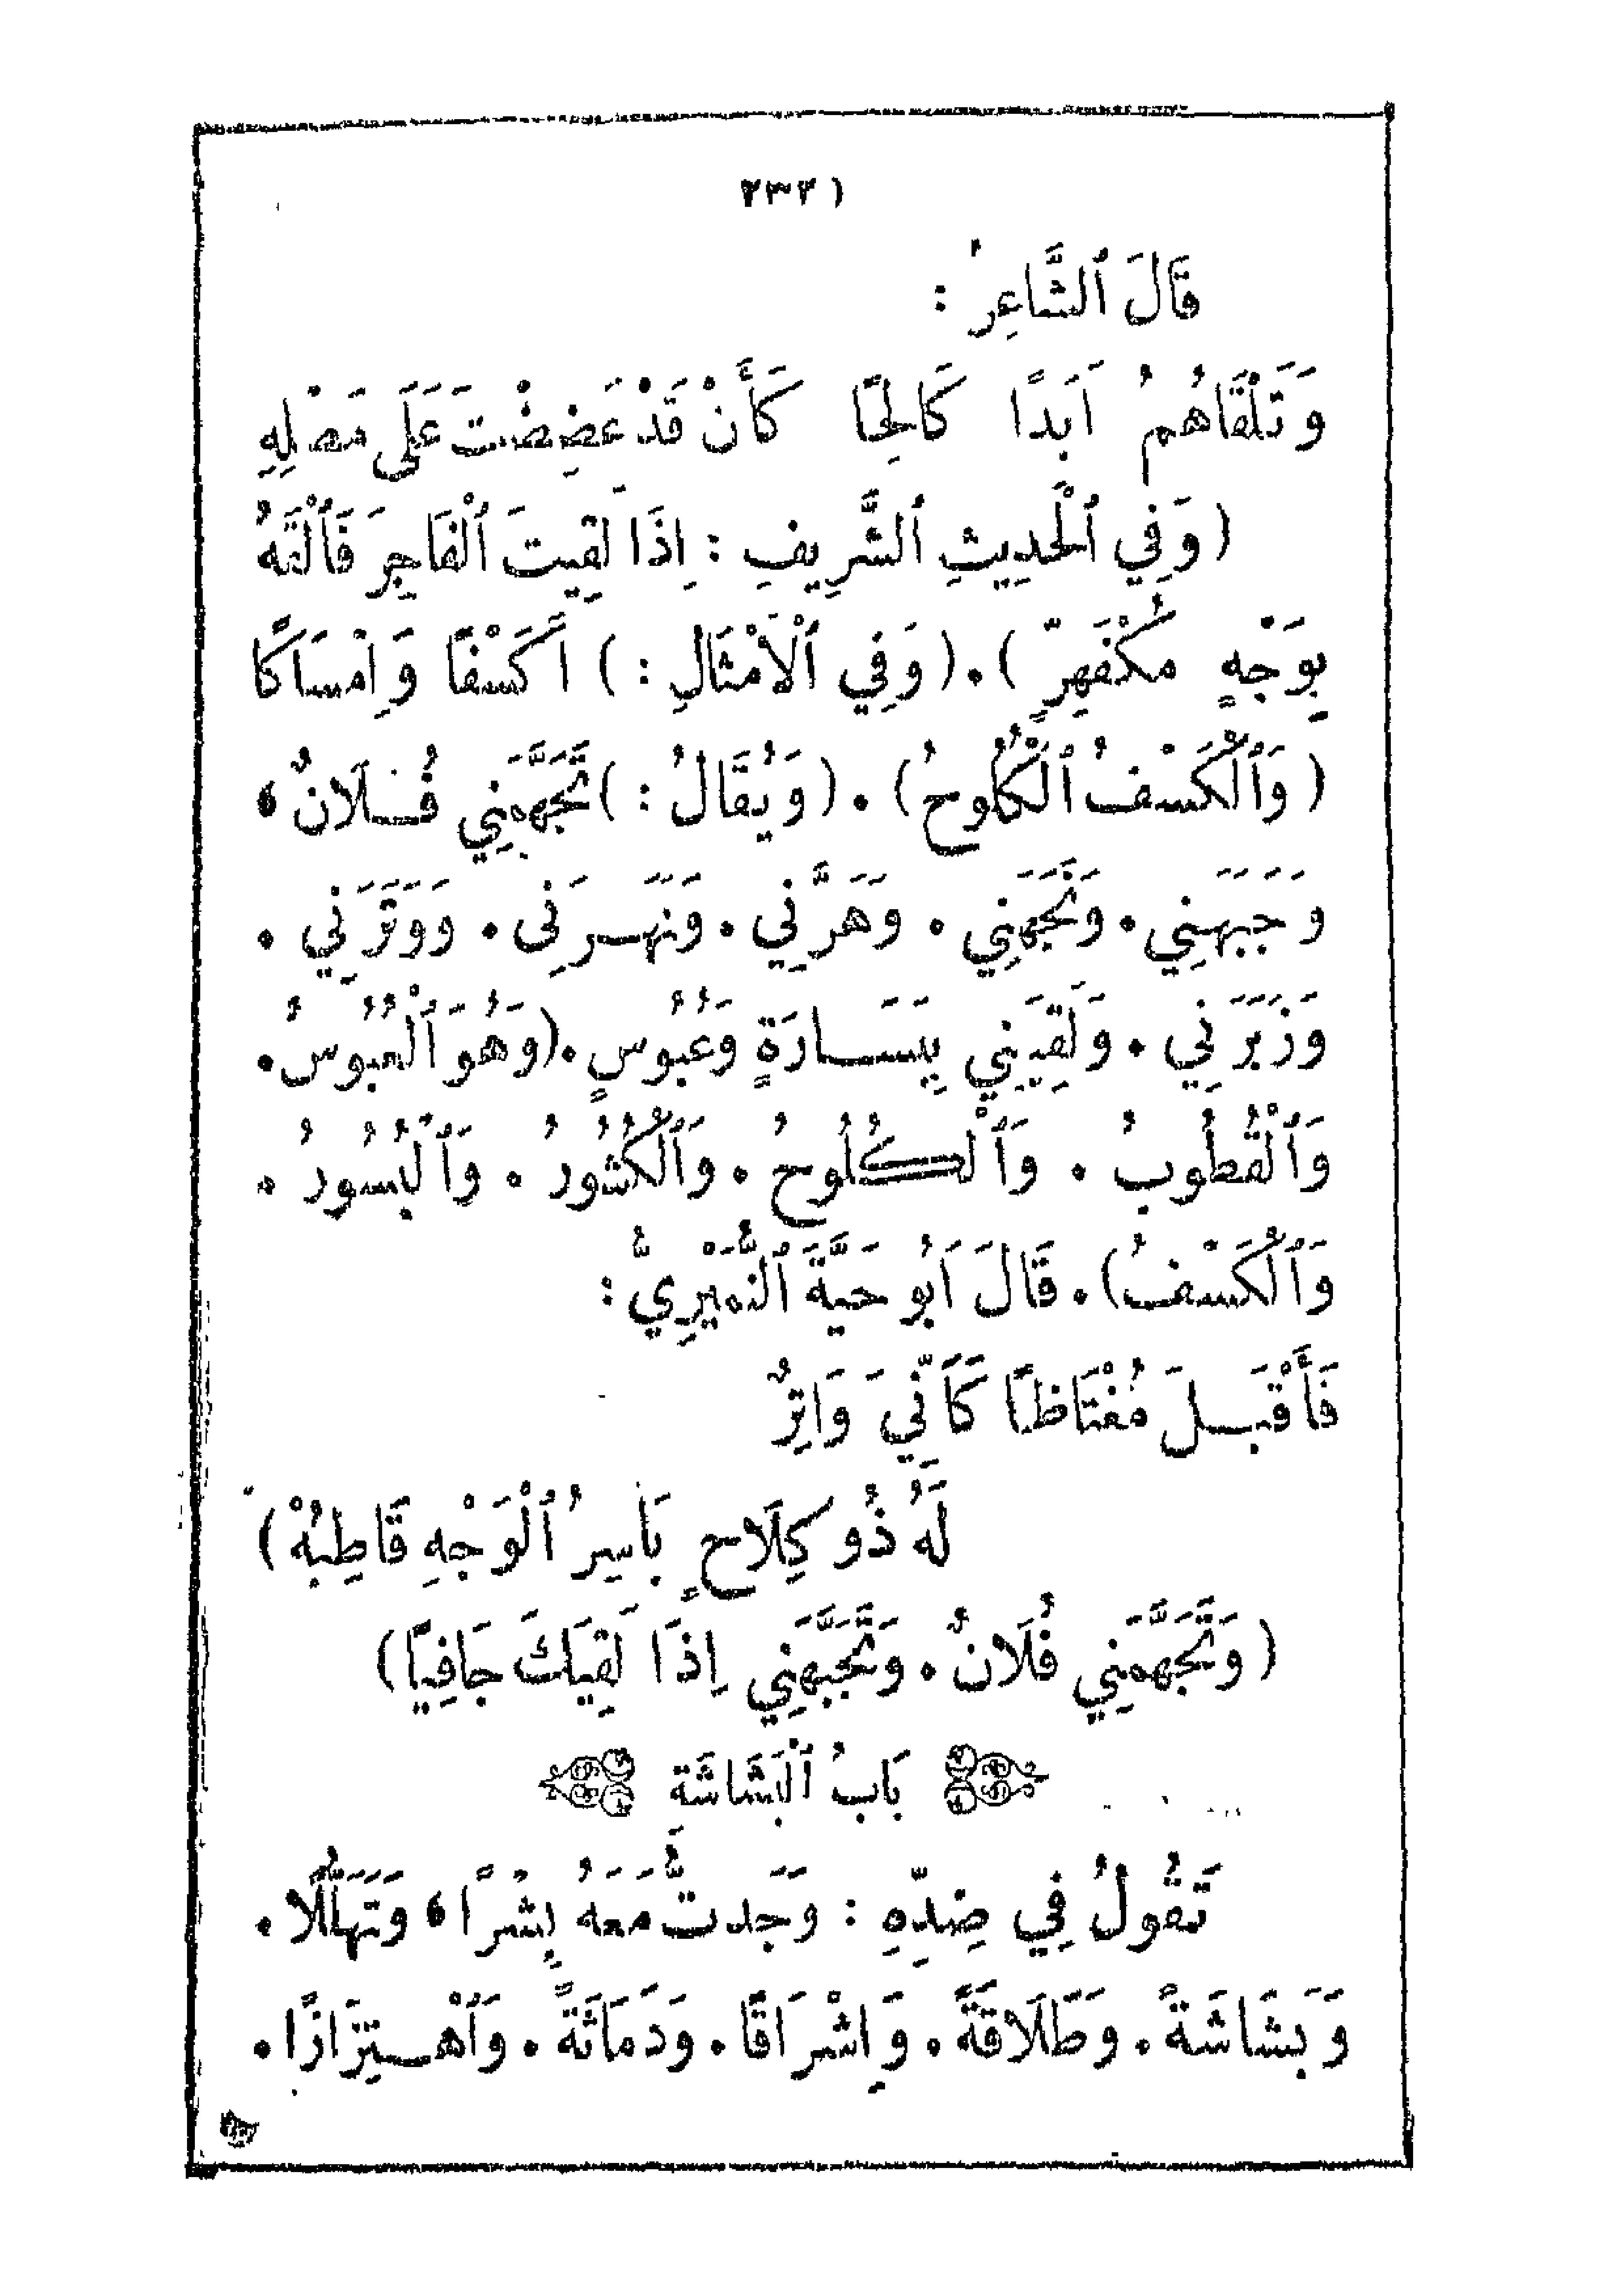 قَالَ ٱلشَّاعِرُ :
وَتَلْقَاهُمُ اَبَدًا كَالِحًا كَأَنْ قَدْ عَضِضْتَ عَلَى مَصْلِهِ
(وَفِي ٱلْحَدِيثِ ٱلشَّرِيفِ : اِذَا لَقِيتَ ٱلْفَاجِرَ فَٱلْقَهُ
بِوَجْهٍ مُكْفَهِرٍّ) . (وَفِي ٱلْاَمْثَالِ :) اَكَسْفًا وَاِمْسَاكًا
(وَٱلْكَسْفُ ٱلْكُلُوحُ) . (وَيُقَالُ :) تَجَهَّمَنِي فُلَانٌ ،
وَجَبَهَنِي . وَنَجَهَنِي . وَهَرَّنِي . وَنَهَرَنِي . وَوَتَرَنِي .
وَزَبَرَنِي . وَلَقِيَنِي بِبَسَارَةٍ وَعُبُوسٍ . (وَهُوَ ٱلْعُبُوسُ .
وَٱلْقُطُوبُ . وَٱلْكُلُوحُ . وَٱلْكُشُورُ . وَٱلْبُسُورُ .
وَٱلْكَسْفُ) . قَالَ اَبُو حَيَّةَ ٱلنُّمَيْرِيُّ :
فَأَقْبَلَ مُغْتَاظًا كَاَنِّيَ وَاتِرٌ
لَهُ ذُو كِلَاحٍ بَاسِرُ ٱلْوَجْهِ قَاطِبُهْ)
(وَتَجَهَّمَنِي فُلَانٌ . وَتَجَبَّهَنِي اِذَا لَقِيَكَ جَافِيًا)
بَابُ ٱلْبَشَاشَةِ
تَقُولُ فِي ضِدِّهِ : وَجَدتُّ مَعَهُ بِشْرًا ، وَتَهَلُّلًا .
وَبَشَاشَةً . وَطَلَاقَةً . وَاِشْرَاقًا . وَدَمَاثَةً . وَٱهْتِزَازًا .